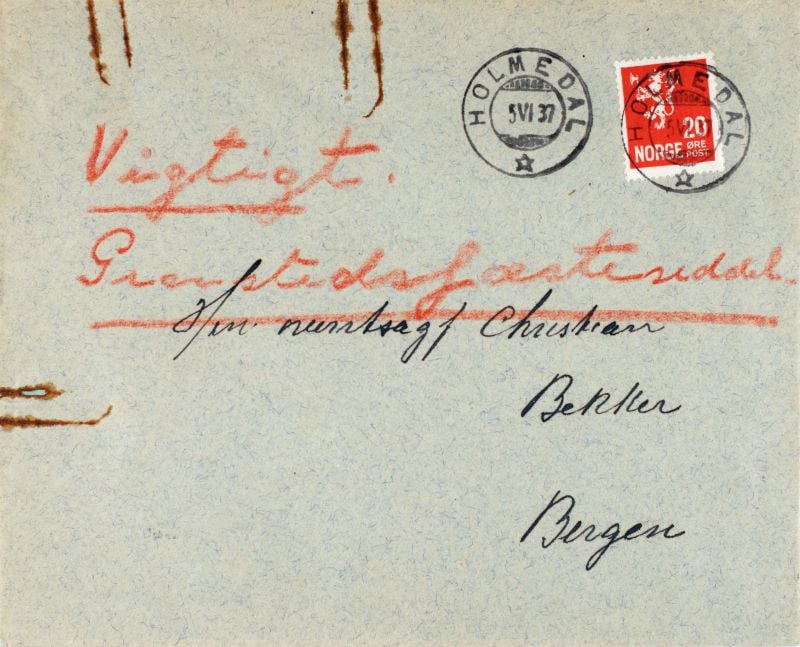 HOLMEDAL
5 VI 37
HOLMEDAL
5 VI 37
20
NORGE ØRE
POST
Vigtigt.
Gravstedsfæsteseddel.
Hrr. Christian
Bekker
Bergen